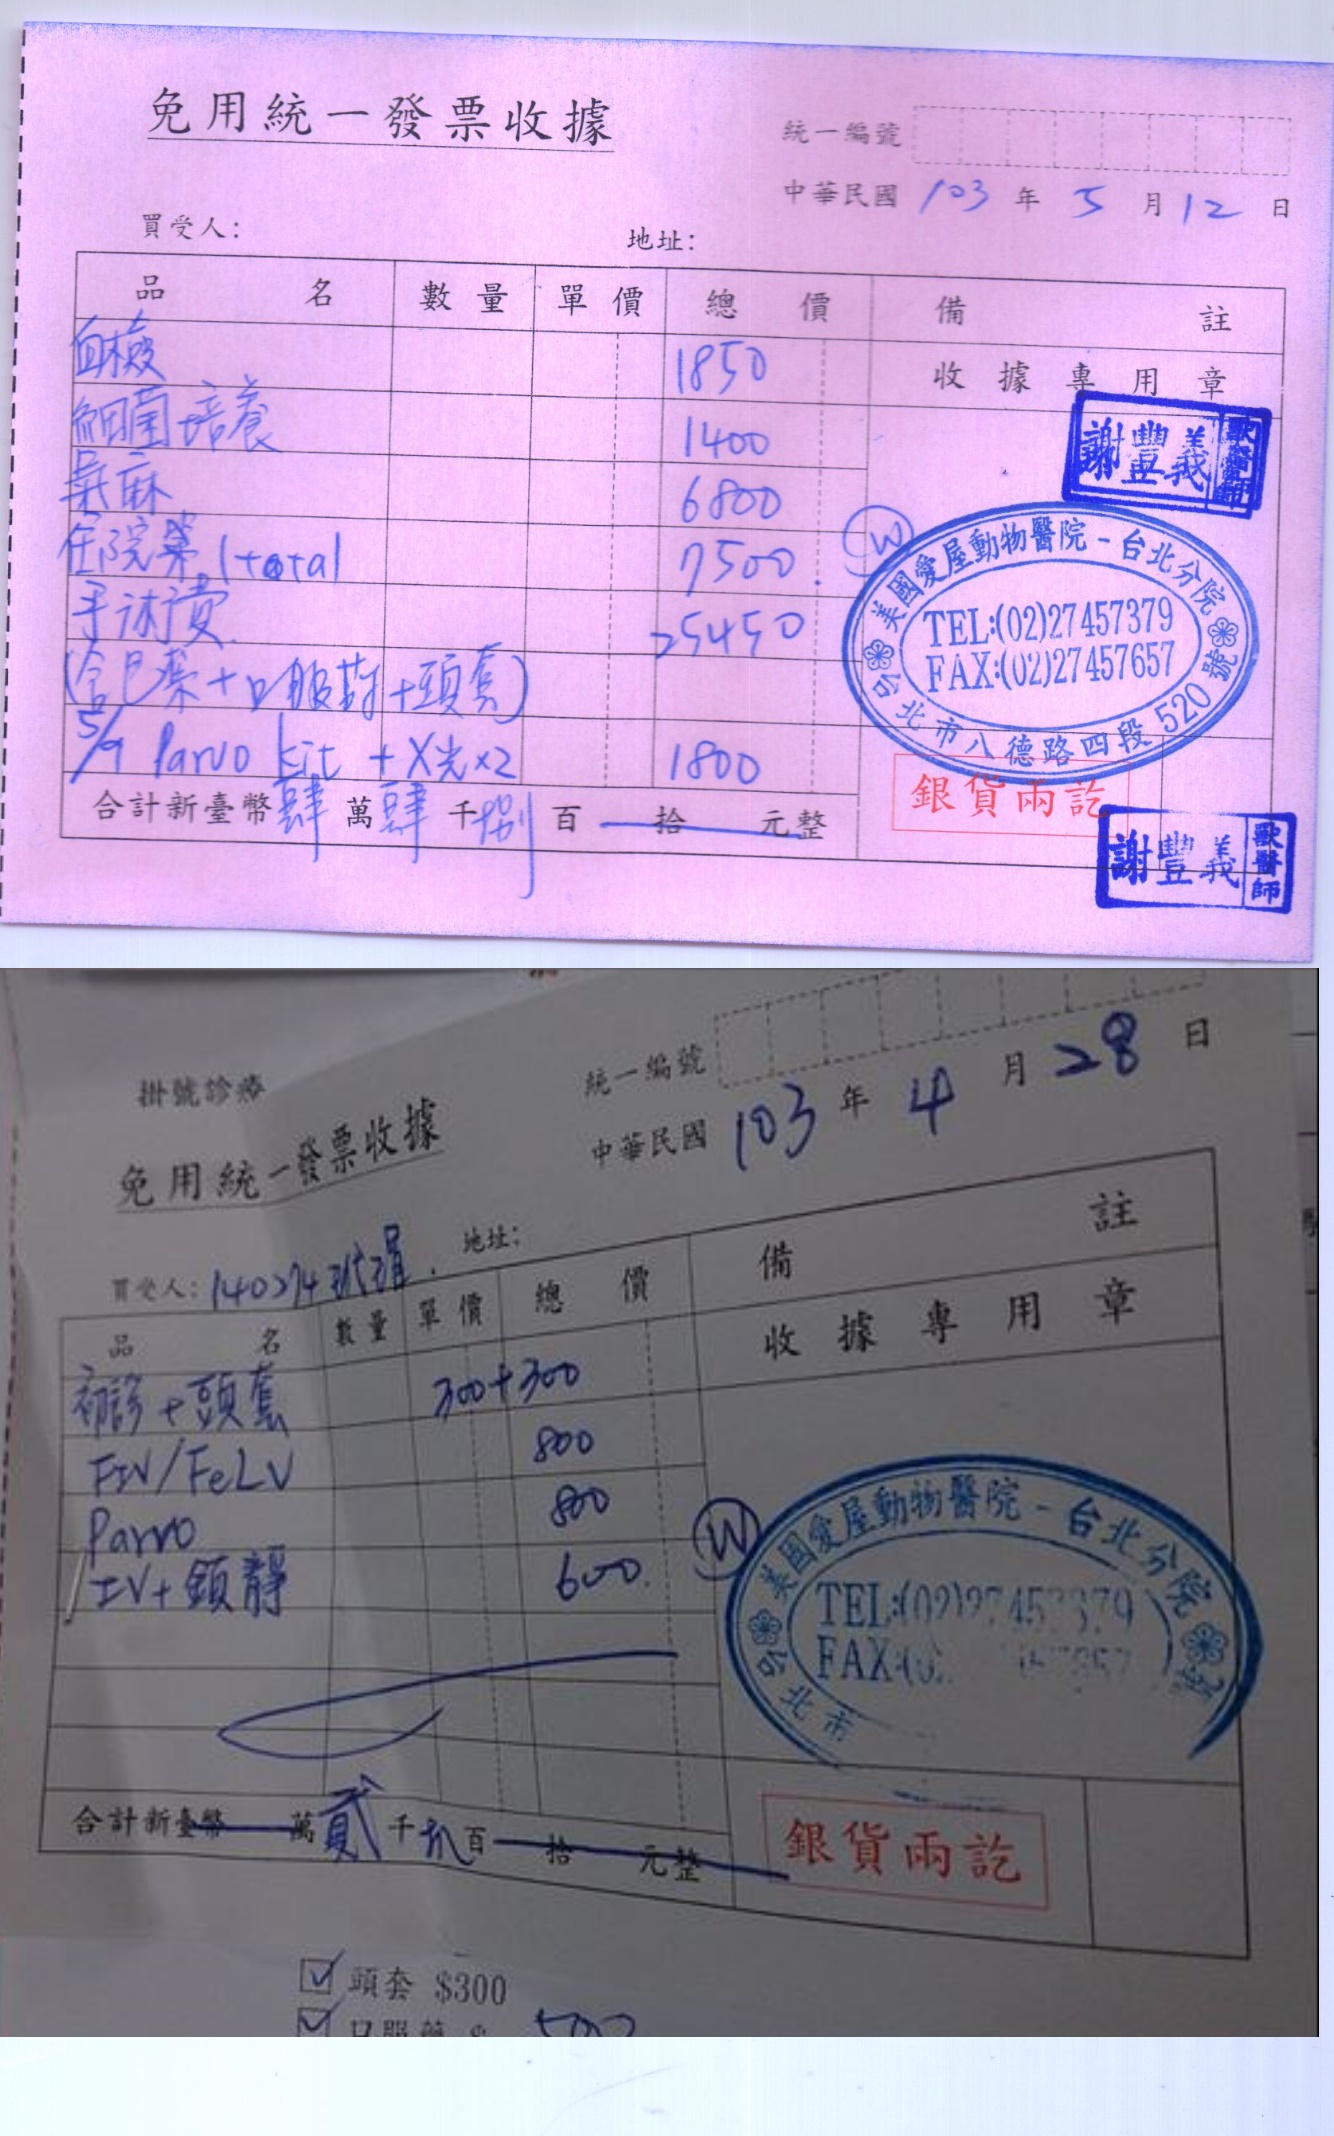 免用統一發票收據
統一編號
中華民國 103 年 5 月 12 日
買受人: 地址:
品名 數量 單價 總價 備註
血檢 1850 收據專用章
細菌培養 1400
氣麻 6800
住院 藥 1total 7500.
手術費 25450
(含巴 藥+口服 +頭套)
5/9 Parvo kit +X光×2 1800
合計新臺幣肆萬肆千捌百 拾 元整
謝豐義 獸醫師
W
美國愛屋動物醫院-台北分院
TEL:(02)27457379
FAX:(02)27457657
台北市八德路四段520號
銀貨兩訖
謝豐義 獸醫師
掛號診療
統一編號
中華民國 103 年 4 月 28 日
免用統一發票收據
買受人: 140274 地址:
品名 數量 單價 總價 備註
初診+頭套 300+300 收據專用章
FIV/FeLV 800
Parvo 800
IV+鎮靜 600
W
美國愛屋動物醫院-台北分院
TEL:(02)27457379
FAX:(0
台北市 號
合計新臺幣 萬貳千捌百 拾 元整
銀貨兩訖
頭套 $300
口服藥 $ 500